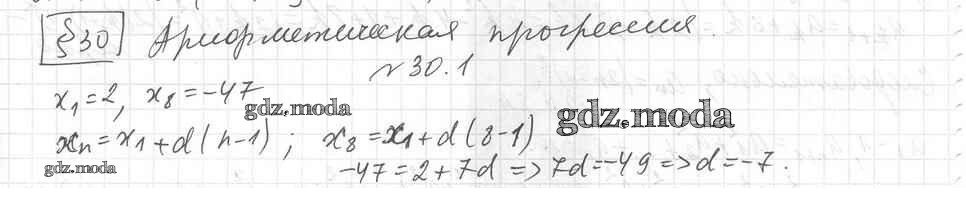 §30 Арифметическая прогрессия.
№30.1
x₁=2, x₈=-47
gdz.moda
gdz.moda
xₙ=x₁+d(n-1); x₈=x₁+d(8-1)
gdz.moda
-47=2+7d=>7d=-49=>d=-7.